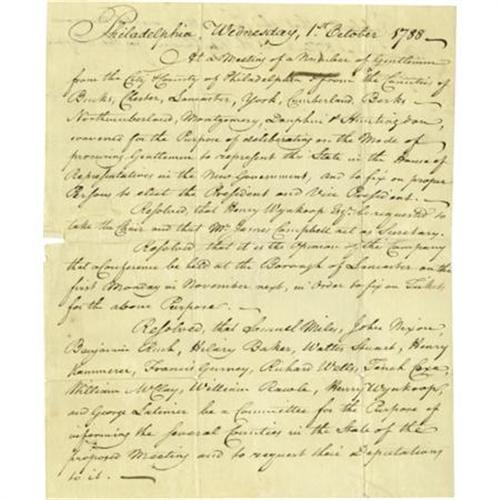 Philadelphia, Wednesday, 1st October 1788 —
At a Meeting of a Number of Gentlemen
from the City & County of Philadelphia & from the Counties of
Bucks, Chester, Lancaster, York, Cumberland, Berks —
Northumberland, Montgomery, Dauphin & Huntingdon,
convened for the Purpose of deliberating on the Mode of
procuring Gentlemen to represent this State in the House of
Representatives in the New Government, and to fix on proper
Persons to elect the President and Vice President. —
Resolved, that Henry Wynkoop Esqr. be requested to
take the Chair and that Mr. James Campbell act as Secretary.
Resolved that it is the Opinion of the Company
that a Conference be held at the Borough of Lancaster on the
first Monday in November next, in Order to fix on Tickets
for the above Purpose. —
Resolved, that Samuel Miles, John Nixon,
Benjamin Rush, Hilary Baker, Walter Stuart, Henry
Kammerer, Francis Gurney, Richard Wells, Tench Coxe,
William McClay, William Rawle, Henry Wynkoop,
and George Latimer be a Committee for the Purpose of
informing the several Counties in the State of the
proposed Meeting and to request their Deputations
to it. —